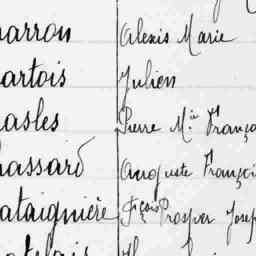 arron Alexis Marie
artois Julien
asles Pierre M.ie Franço
assard Auguste Françoi
ataignière Fçois Prosper Josep